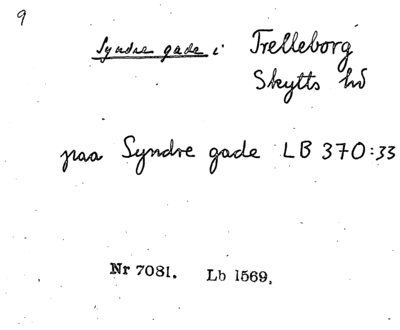 9
Syndre gade i Trelleborg
Skytts hd
paa Syndre gade LB 370:33
Nr 7081. Lb 1569.